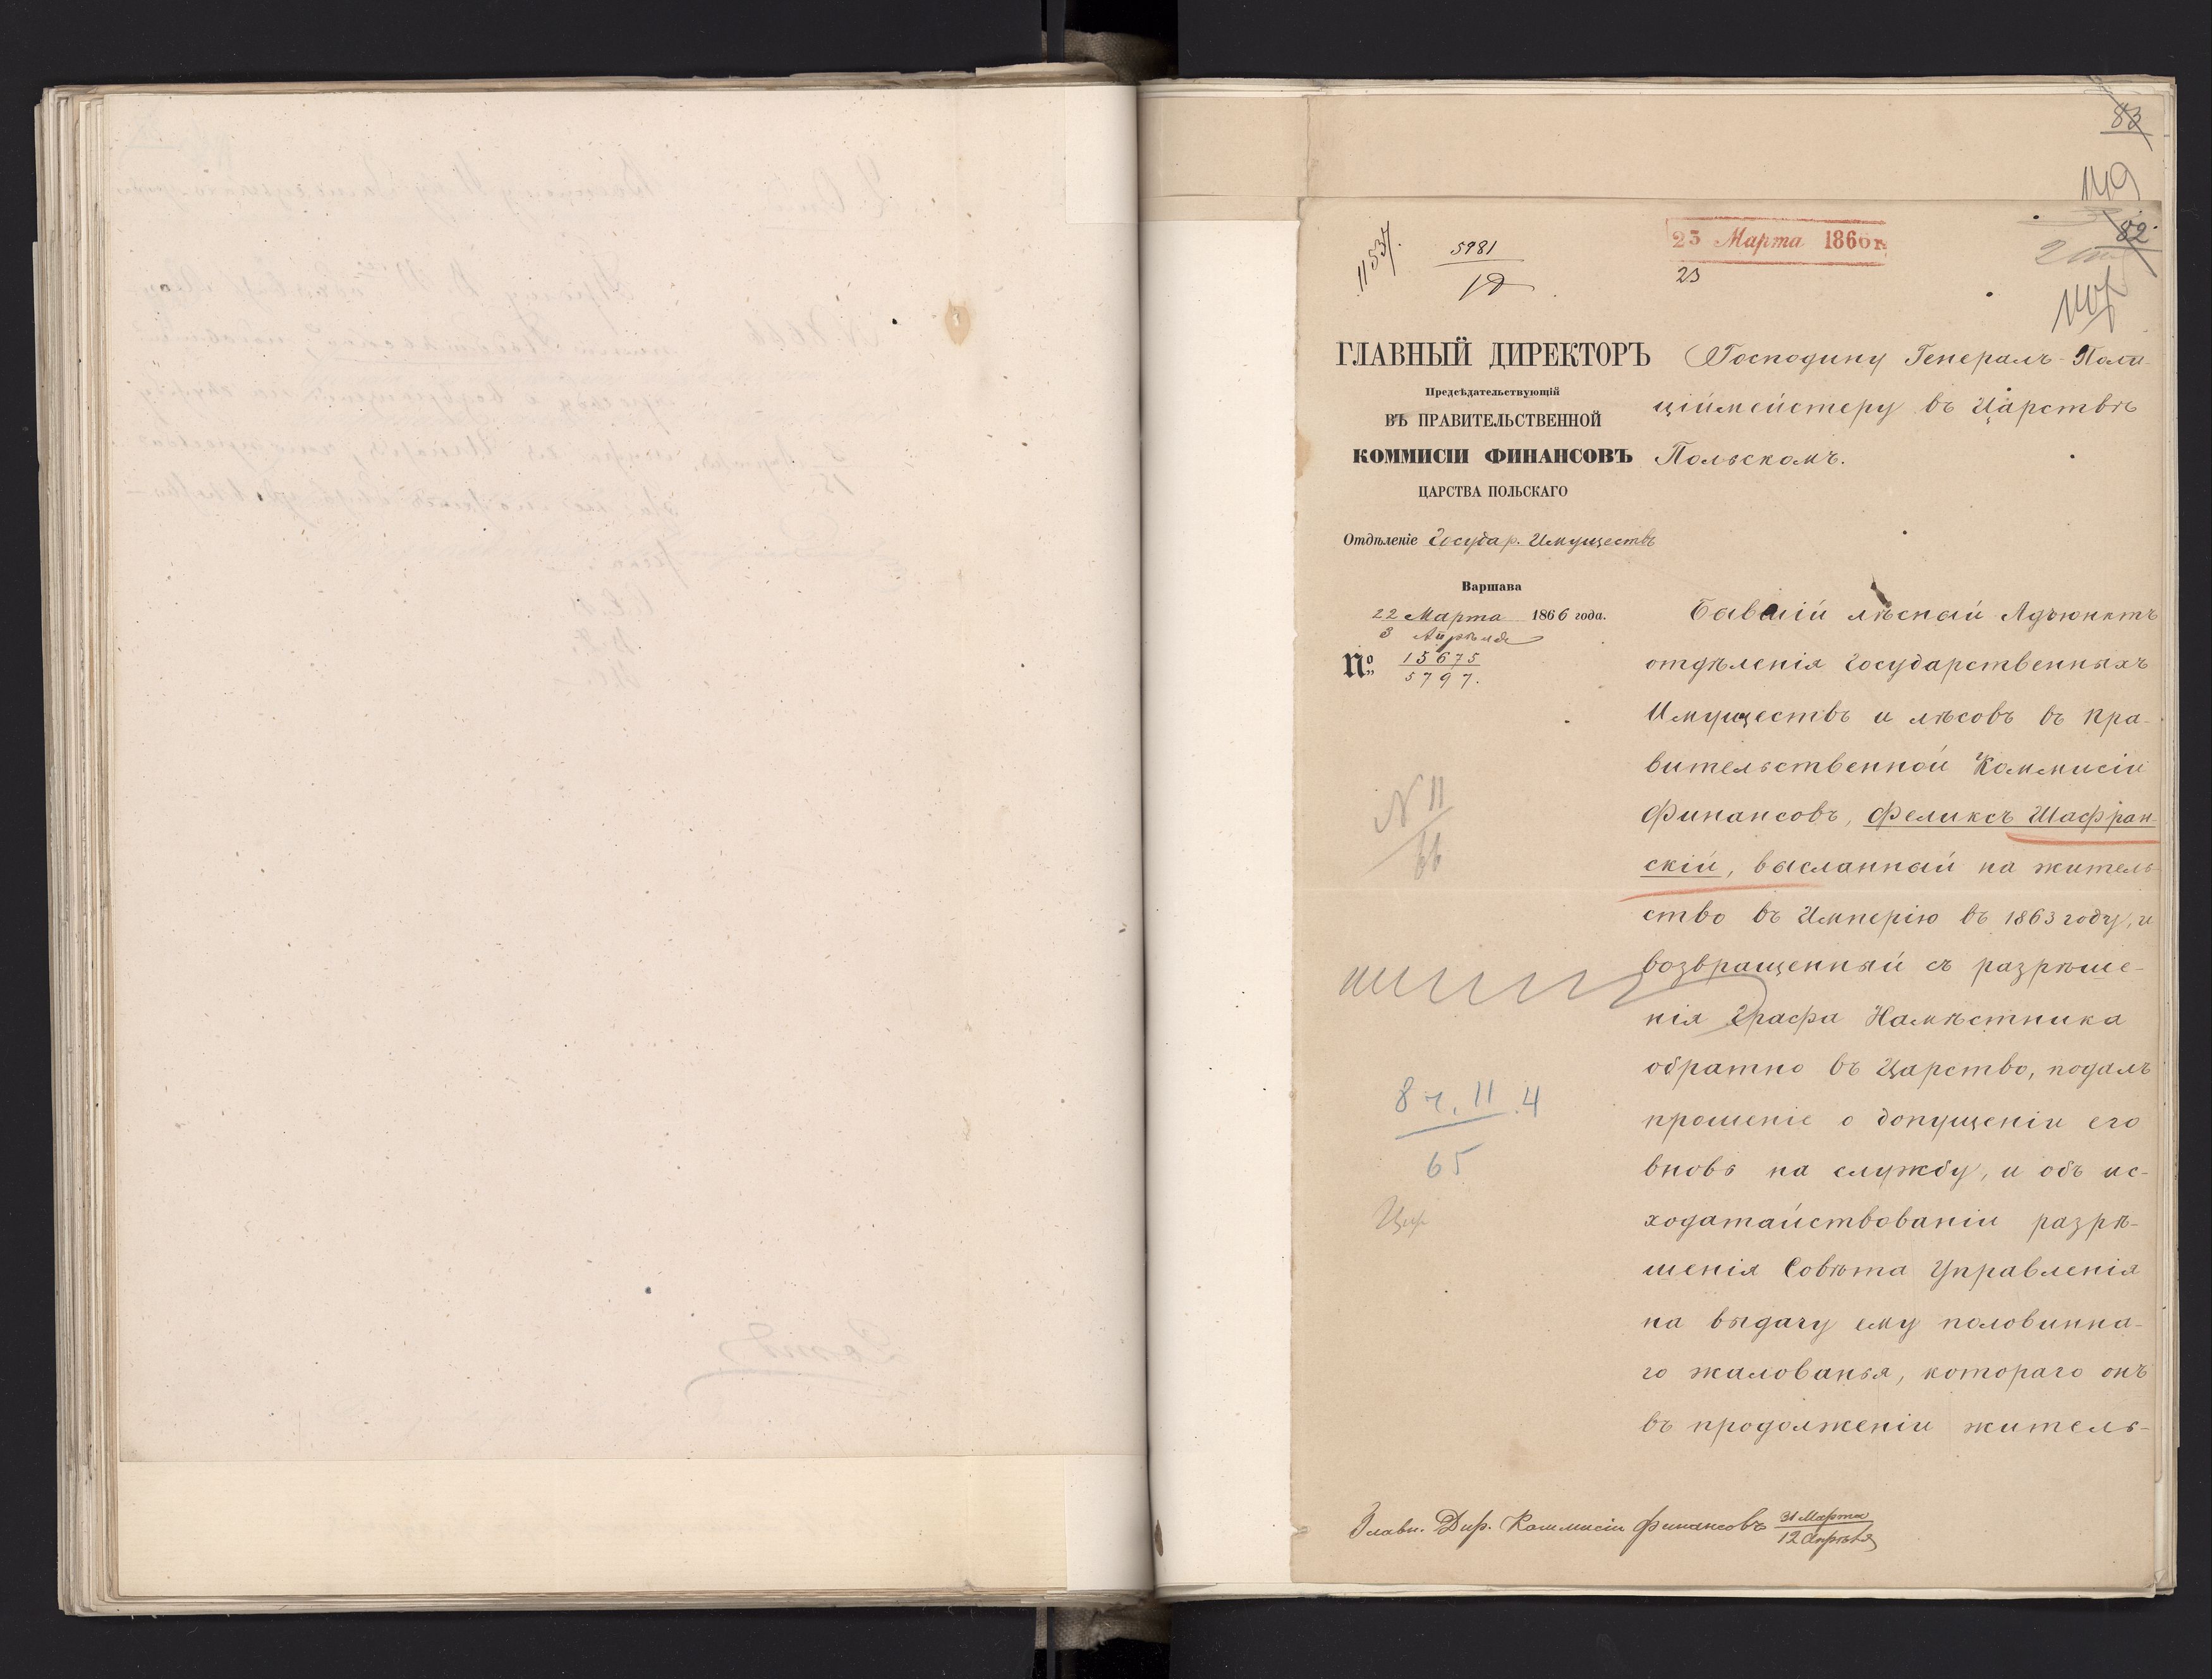 83
149
82
11537.
5981
12
25 Марта 1866 г.
23
ГЛАВНЫЙ ДИРЕКТОРЪ
Предсѣдательствующій
ВЪ ПРАВИТЕЛЬСТВЕННОЙ
КОММИСІИ ФИНАНСОВЪ
ЦАРСТВА ПОЛЬСКАГО
Отдѣленіе Государ. Имуществъ
Варшава
22 Марта 1866 года.
3 Апрѣля
№ 15675
5797.
Господину Генералъ-Поли-
ціймейстеру въ Царствѣ
Польскомъ.
Бывшій лѣсной Адъюнктъ
отдѣленія Государственныхъ
Имуществъ и лѣсовъ въ Пра-
вительственной Коммисіи
Финансовъ, Феликсъ Шафран-
скій, высланный на житель-
ство въ Имперію въ 1863 году, и
возвращенный съ разрѣше-
нія Графа Намѣстника
обратно въ Царство, подалъ
прошеніе о допущеніи его
вновь на службу, и объ ис-
ходатайствованіи разрѣ-
шенія Совѣта Управленія
на выдачу ему половинна-
го жалованья, котораго онъ
въ продолженіи житель-
N 11
66
8 ч. 11.4
65
Главн. Дир. Коммисіи Финансовъ 31 Марта
12 Апрѣля